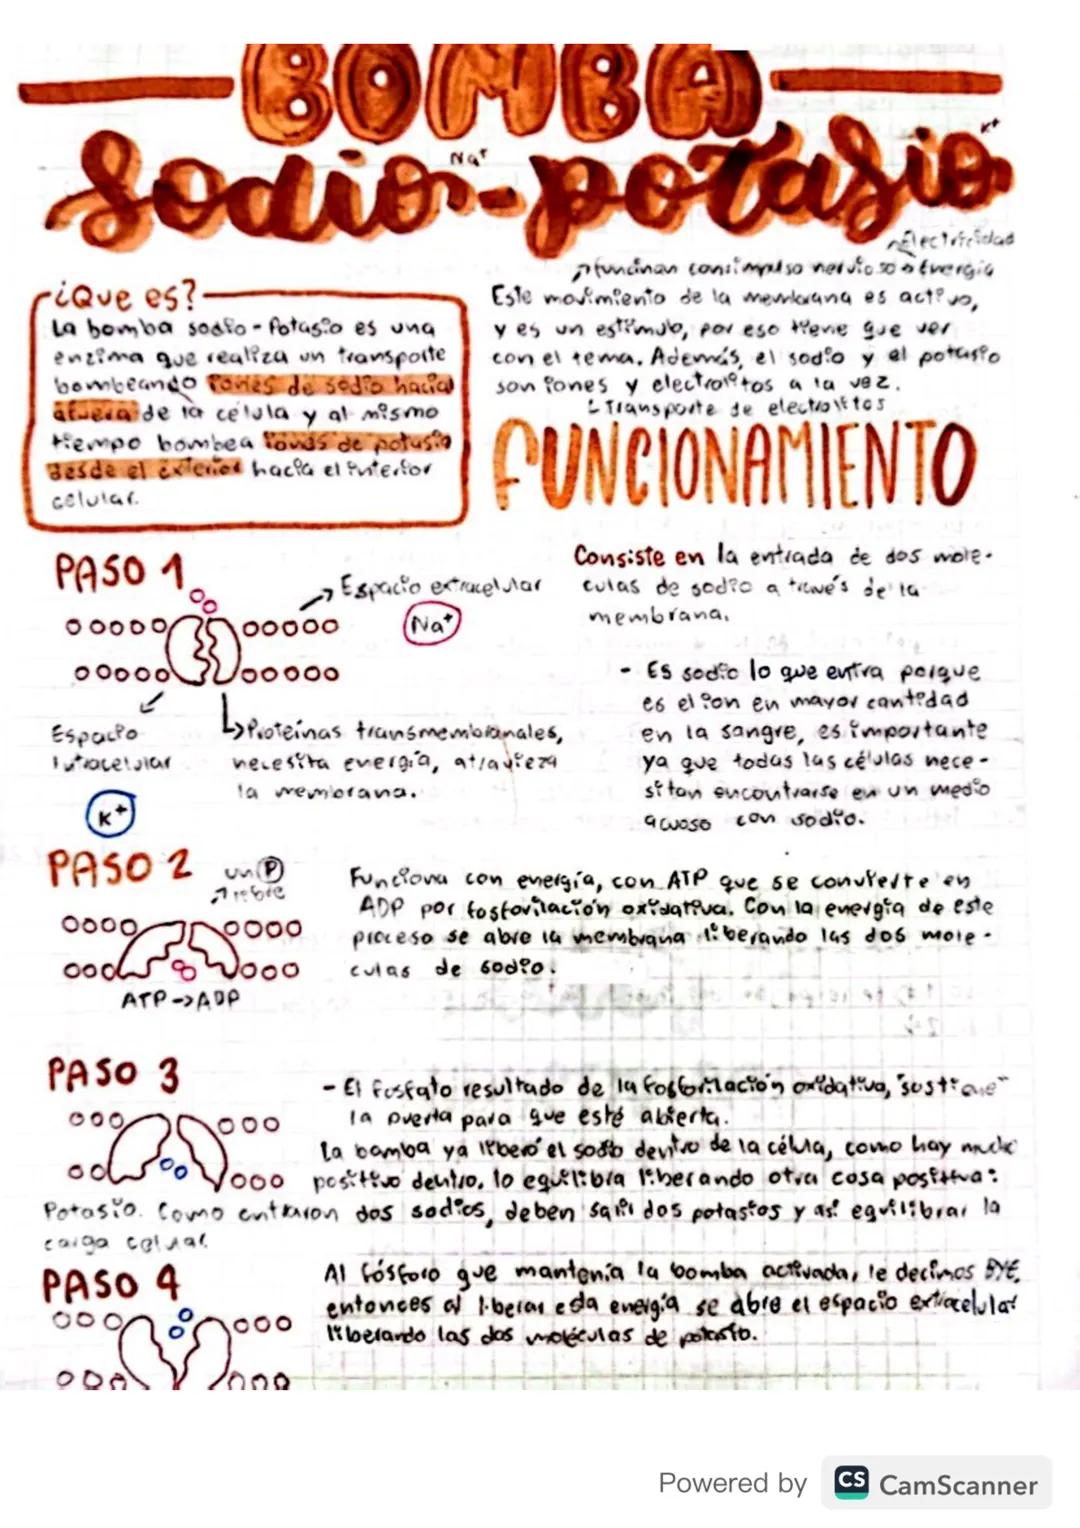 BOMBA
Sodio-potasio
Na⁺
K⁺
Electricidad
funcionan con impulso nervioso Energía
¿Que es?
La bomba sodio-Potasio es una
enzima que realiza un transporte
bombeando iones de sodio hacia
afuera de la célula y al mismo
tiempo bombea iones de potasio
desde el exterior hacia el interior
celular.
Este movimiento de la membrana es activo,
y es un estímulo, por eso tiene que ver
con el tema. Además, el sodio y el potasio
son iones y electrolitos a la vez.
Transporte de electrolitos
FUNCIONAMIENTO
PASO 1
Espacio extracelular
Na⁺
Espacio
Intracelular
K⁺
Proteínas transmembranales,
necesita energía, atravieza
la membrana.
Consiste en la entrada de dos mole-
culas de sodio a través de la
membrana.
- Es sodio lo que entra porque
es el ion en mayor cantidad
en la sangre, es importante
ya que todas las células nece-
sitan encontrarse en un medio
acuoso con sodio.
PASO 2
un P
libre
ATP->ADP
Funciona con energía, con ATP que se convierte en
ADP por fosforilación oxidativa. Con la energía de este
proceso se abre la membrana liberando las dos mole-
culas de sodio.
PASO 3
- El fosfato resultado de la fosforilación oxidativa, "sostiene"
la puerta para que esté abierta.
La bomba ya liberó el sodio dentro de la célula, como hay mucho
positivo dentro, lo equilibra liberando otra cosa positiva:
Potasio. Como entraron dos sodios, deben salir dos potasios y así equilibrar la
carga celular.
PASO 4
Al fósforo que mantenía la bomba activada, le decimos BYE,
entonces al liberar esta energía se abre el espacio extracelular
liberando las dos moléculas de potasio.
Powered by CS CamScanner